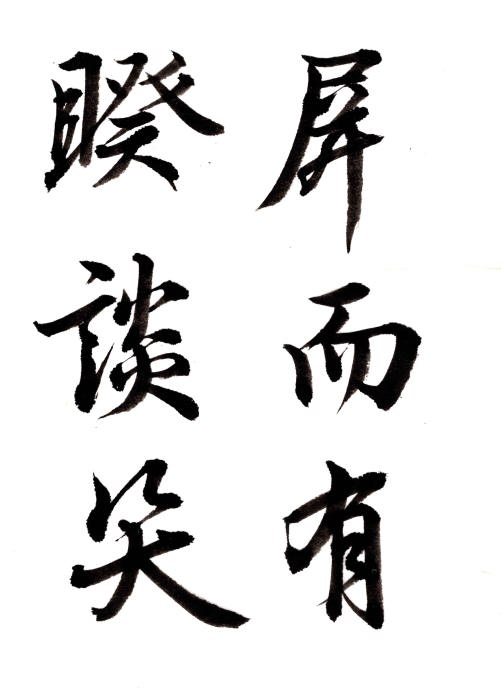 屏而有
睽談笑